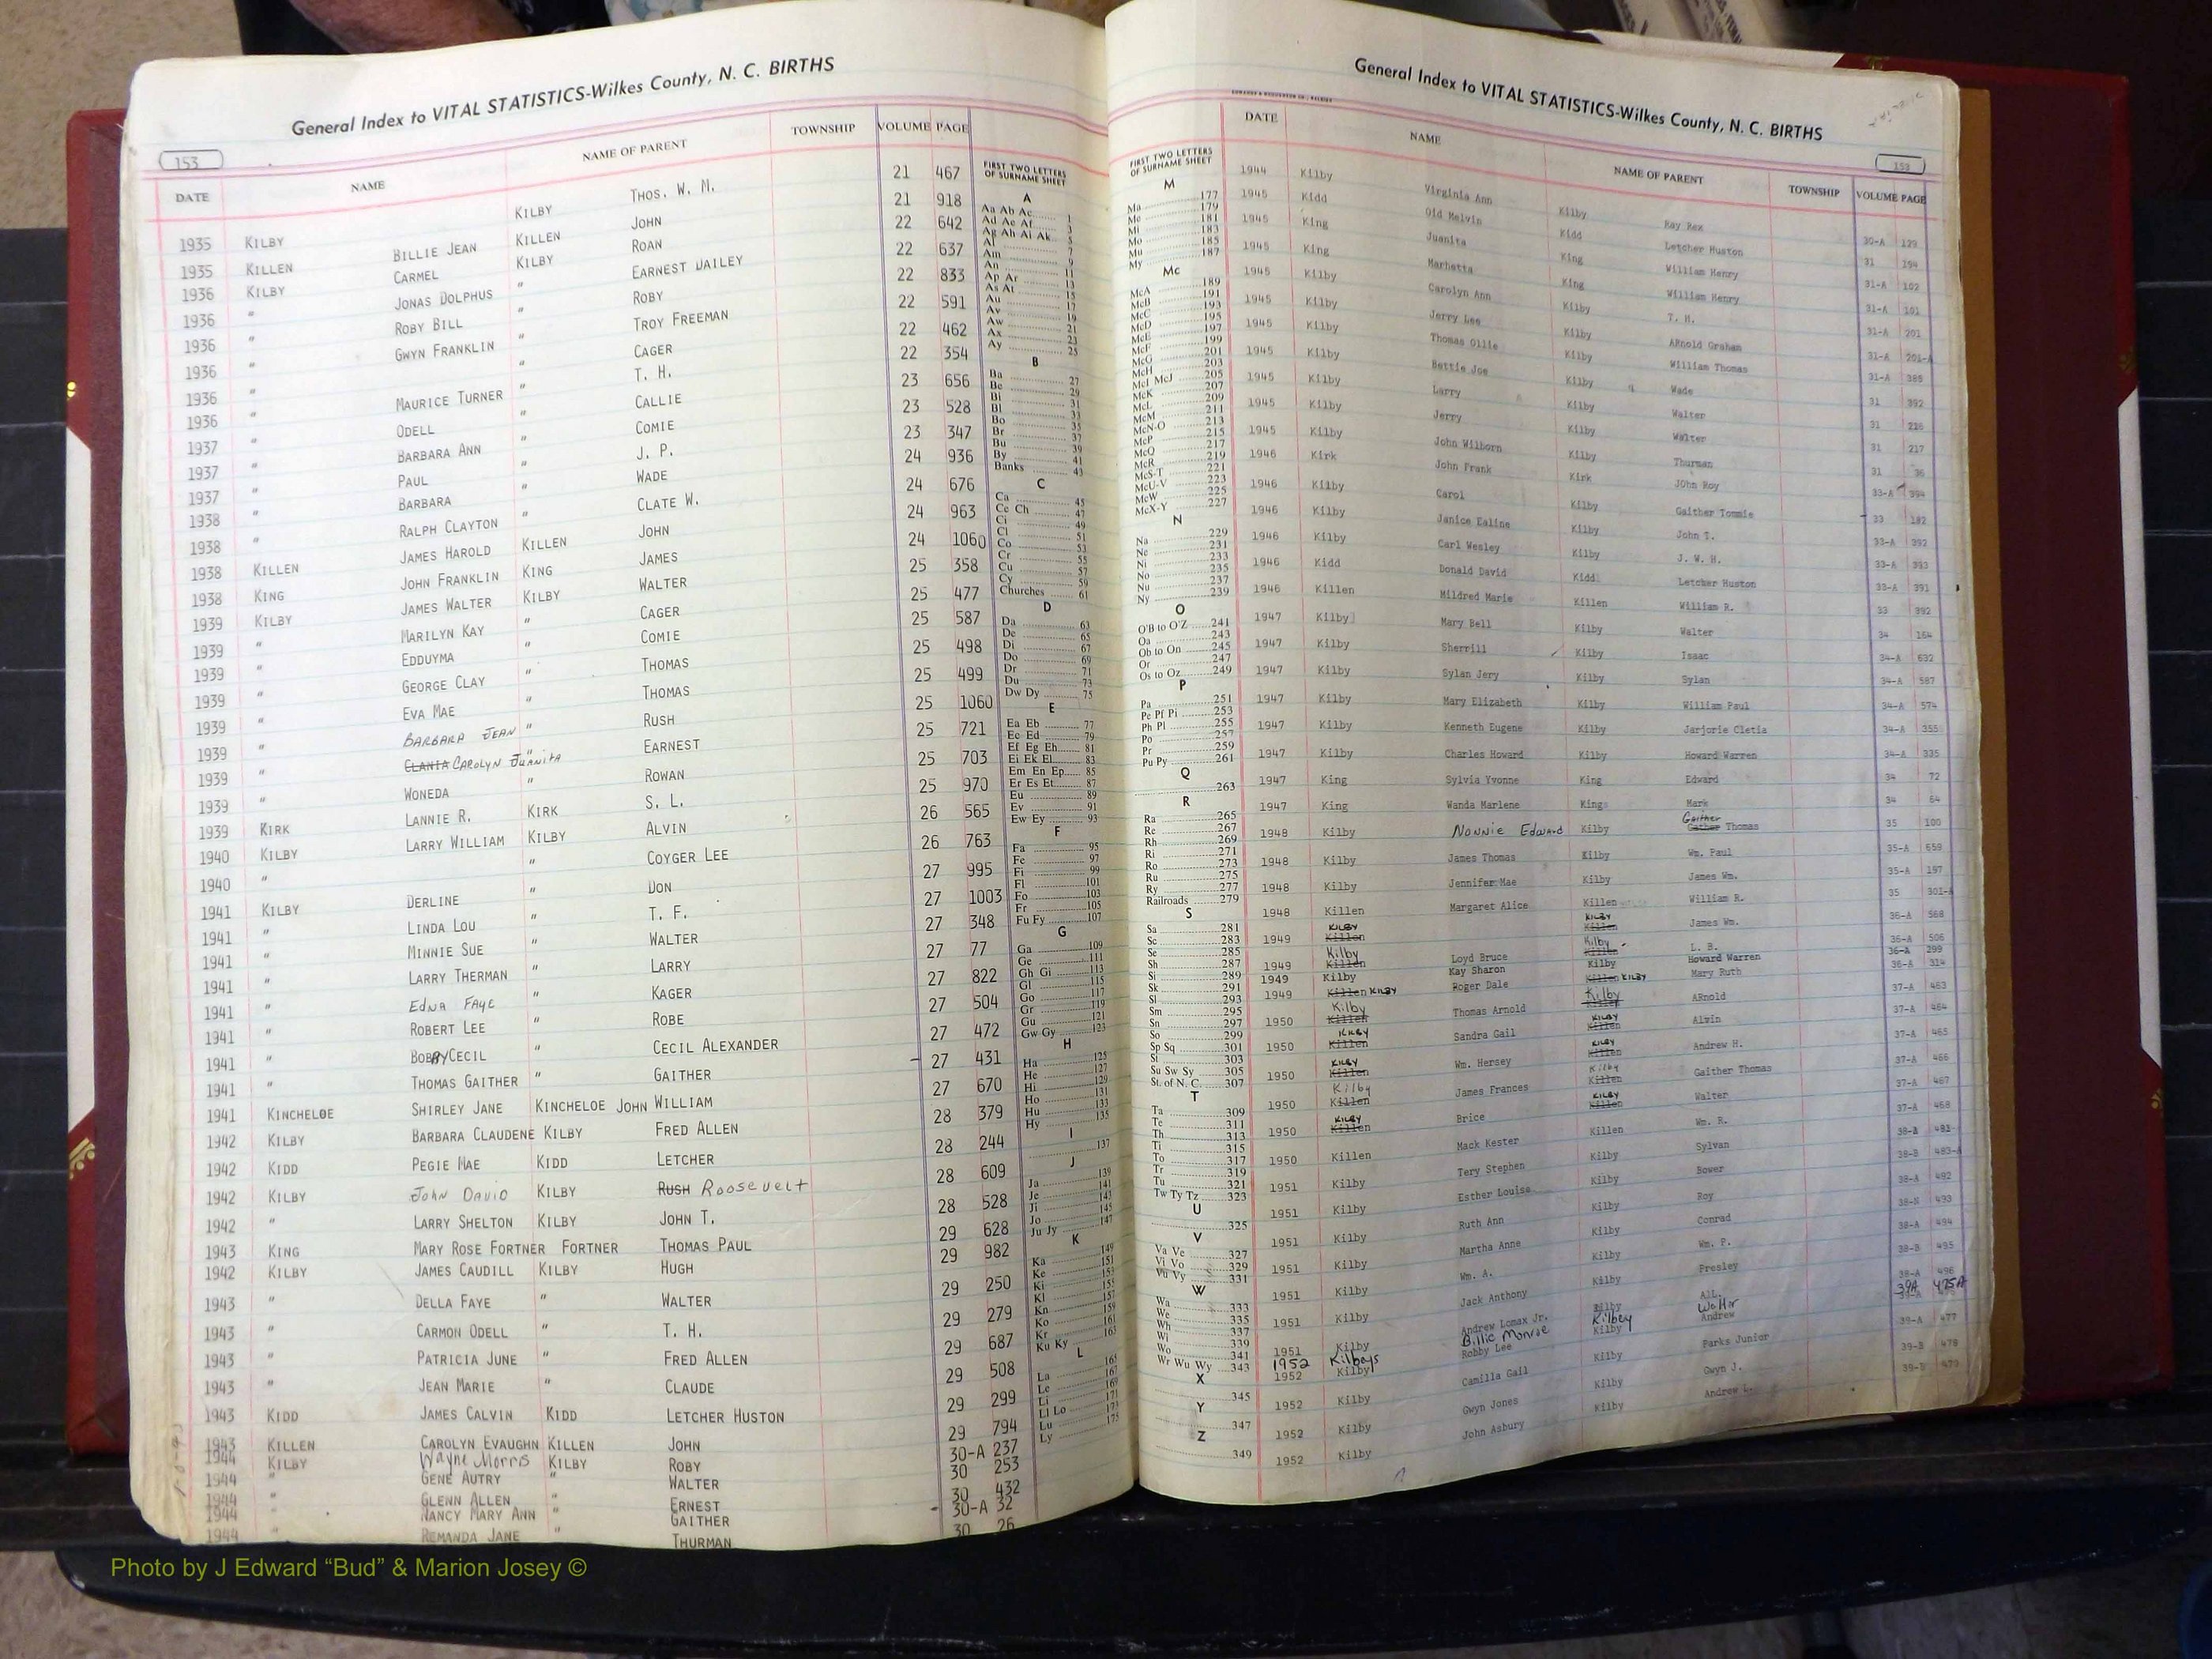 General Index to VITAL STATISTICS-Wilkes County, N. C. BIRTHS
153
DATE NAME NAME OF PARENT TOWNSHIP VOLUME PAGE
1935 KILBY KILBY THOS. W. M. 21 467
1935 KILLEN BILLIE JEAN KILLEN JOHN 21 918
1936 KILBY CARMEL KILBY ROAN 22 642
1936 " JONAS DOLPHUS " EARNEST DAILEY 22 637
1936 " ROBY BILL " ROBY 22 833
1936 " GWYN FRANKLIN " TROY FREEMAN 22 591
1936 " " CAGER 22 462
1936 " MAURICE TURNER " T. H. 22 354
1937 " ODELL " CALLIE 23 656
1937 " BARBARA ANN " COMIE 23 528
1937 " PAUL " J. P. 23 347
1938 " BARBARA " WADE 24 936
1938 " RALPH CLAYTON " CLATE W. 24 676
1938 KILLEN JAMES HAROLD KILLEN JOHN 24 963
1938 KING JOHN FRANKLIN KING JAMES 24 1060
1939 KILBY JAMES WALTER KILBY WALTER 25 358
1939 " MARILYN KAY " CAGER 25 477
1939 " EDDUYMA " COMIE 25 587
1939 " GEORGE CLAY " THOMAS 25 498
1939 " EVA MAE " THOMAS 25 499
1939 " BARBARA JEAN " RUSH 25 1060
1939 " CLANIA CAROLYN JUANITA " EARNEST 25 721
1939 " WONEDA " ROWAN 25 703
1939 KIRK LANNIE R. KIRK S. L. 25 970
1940 KILBY LARRY WILLIAM KILBY ALVIN 26 565
1940 " " COYGER LEE 26 763
1941 KILBY DERLINE " DON 27 995
1941 " LINDA LOU " T. F. 27 1003
1941 " MINNIE SUE " WALTER 27 348
1941 " LARRY THERMAN " LARRY 27 77
1941 " EDNA FAYE " KAGER 27 822
1941 " ROBERT LEE " ROBE 27 504
1941 " BOBBY CECIL " CECIL ALEXANDER 27 472
1941 " THOMAS GAITHER " GAITHER 27 431
1941 KINCHELOE SHIRLEY JANE KINCHELOE JOHN WILLIAM 27 670
1942 KILBY BARBARA CLAUDENE KILBY FRED ALLEN 28 379
1942 KIDD PEGIE MAE KIDD LETCHER 28 244
1942 KILBY JOHN DAVID KILBY RUSH Roosevelt 28 609
1942 " LARRY SHELTON KILBY JOHN T. 28 528
1943 KING MARY ROSE FORTNER FORTNER THOMAS PAUL 29 628
1942 KILBY JAMES CAUDILL KILBY HUGH 29 982
1943 " DELLA FAYE " WALTER 29 250
1943 " CARMON ODELL " T. H. 29 279
1943 " PATRICIA JUNE " FRED ALLEN 29 687
1943 " JEAN MARIE " CLAUDE 29 508
1943 KIDD JAMES CALVIN KIDD LETCHER HUSTON 29 299
1943 KILLEN CAROLYN EVAUGHN KILLEN JOHN 29 794
1944 KILBY Wayne Morris KILBY ROBY 30-A 237
1944 " GENE AUTRY " WALTER 30 253
1944 " GLENN ALLEN " ERNEST 30 432
1944 " NANCY MARY ANN " GAITHER 30-A 32
1944 " REMANDA JANE " THURMAN 30 26
FIRST TWO LETTERS
OF SURNAME SHEET
A
Aa Ab Ac 1
Ad Ae Af 3
Ag Ah Ai Ak 5
Al 7
Am 9
An 11
Ap Ar 13
As At 15
Au 17
Av 19
Aw 21
Ax 23
Ay 25
B
Ba 27
Be 29
Bi 31
Bl 33
Bo 35
Br 37
Bu 39
By 41
Banks 43
C
Ca 45
Ce Ch 47
Ci 49
Cl 51
Co 53
Cr 55
Cu 57
Cy 59
Churches 61
D
Da 63
De 65
Di 67
Do 69
Dr 71
Du 73
Dw Dy 75
E
Ea Eb 77
Ec Ed 79
Ef Eg Eh 81
Ei Ek El 83
Em En Ep 85
Er Es Et 87
Eu 89
Ev 91
Ew Ey 93
F
Fa 95
Fe 97
Fi 99
Fl 101
Fo 103
Fr 105
Fu Fy 107
G
Ga 109
Ge 111
Gh Gi 113
Gl 115
Go 117
Gr 119
Gu 121
Gw Gy 123
H
Ha 125
He 127
Hi 129
Ho 131
Hu 133
Hy 135
I
137
J
Ja 139
Je 141
Ji 143
Jo 145
Ju Jy 147
K
Ka 149
Ke 151
Ki 153
Kl 155
Kn 157
Ko 159
Kr 161
Ku Ky 163
L
La 165
Le 167
Li 169
Ll Lo 171
Lu 173
Ly 175
General Index to VITAL STATISTICS-Wilkes County, N. C. BIRTHS
153
FIRST TWO LETTERS
OF SURNAME SHEET
M
Ma 177
Me 179
Mi 181
Mo 183
Mu 185
My 187
Mc
McA 189
McB 191
McC 193
McD 195
McE 197
McF 199
McG 201
McH 203
McI McJ 205
McK 207
McL 209
McM 211
McN-O 213
McP 215
McQ 217
McR 219
McS-T 221
McU-V 223
McW 225
McX-Y 227
N
Na 229
Ne 231
Ni 233
No 235
Nu 237
Ny 239
O
O'B to O'Z 241
Oa 243
Ob to On 245
Or 247
Os to Oz 249
P
Pa 251
Pe Pf Pi 253
Ph Pl 255
Po 257
Pr 259
Pu Py 261
Q
263
R
Ra 265
Re 267
Rh 269
Ri 271
Ro 273
Ru 275
Ry 277
Railroads 279
S
Sa 281
Sc 283
Se 285
Sh 287
Si 289
Sk 291
Sl 293
Sm 295
Sn 297
So 299
Sp Sq 301
St 303
Su Sw Sy 305
St. of N. C. 307
T
Ta 309
Te 311
Th 313
Ti 315
To 317
Tr 319
Tu 321
Tw Ty Tz 323
U
325
V
Va Ve 327
Vi Vo 329
Vu Vy 331
W
Wa 333
We 335
Wh 337
Wi 339
Wo 341
Wr Wu Wy 343
X
345
Y
347
Z
349
DATE NAME NAME OF PARENT TOWNSHIP VOLUME PAGE
1944 Kilby Virginia Ann Kilby Ray Rex 30-A 129
1945 Kidd Oid Melvin Kidd Letcher Huston 31 194
1945 King Juanita King William Henry 31-A 102
1945 King Marhetta King William Henry 31-A 101
1945 Kilby Carolyn Ann Kilby T. H. 31-A 201
1945 Kilby Jerry Lee Kilby ARnold Graham 31-A 201-A
1945 Kilby Thomas Ollie Kilby William Thomas 31-A 385
1945 Kilby Bettie Joe Kilby Wade 31 392
1945 Kilby Larry Kilby Walter 31 226
1945 Kilby Jerry Kilby Walter 31 217
1945 Kilby John Wilborn Kilby Thurman 31 36
1946 Kirk John Frank Kirk JOhn Roy 33-A 394
1946 Kilby Carol Kilby Gaither Tommie 33 182
1946 Kilby Janice Ealine Kilby John T. 33-A 392
1946 Kilby Carl Wesley Kilby J. W. H. 33-A 393
1946 Kidd Donald David Kidd Letcher Huston 33-A 391
1946 Killen Mildred Marie Killen William R. 33 392
1947 Kilby Mary Bell Kilby Walter 34 164
1947 Kilby Sherrill Kilby Isaac 34-A 632
1947 Kilby Sylan Jery Kilby Sylan 34-A 587
1947 Kilby Mary Elizabeth Kilby William Paul 34-A 574
1947 Kilby Kenneth Eugene Kilby Jarjorie Cletis 34-A 355
1947 Kilby Charles Howard Kilby Howard Warren 34-A 335
1947 King Sylvia Yvonne King Edward 34 72
1947 King Wanda Marlene King Mark 34 64
1948 Kilby Nonnie Edward Kilby Gather Gaither Thomas 35 100
1948 Kilby James Thomas Kilby Wm. Paul 35-A 659
1948 Kilby Jennifer Mae Kilby James Wm. 35-A 197
1948 Killen Margaret Alice Killen William R. 35 301-A
1949 Killen KILBY Killen KILBY James Wm. 36-A 568
1949 Killen Kilby Loyd Bruce Killen Kilby L. B. 36-A 506
1949 Kilby Kay Sharon Kilby Howard Warren 36-A 299
1949 Killen KILBY Roger Dale Killen KILBY Mary Ruth 36-A 314
1950 Killen Kilby Thomas Arnold Killen Kilby ARnold 37-A 463
1950 Killen KILBY Sandra Gail Killen KILBY Alvin 37-A 464
1950 Killen KILBY Wm. Hersey Killen KILBY Andrew H. 37-A 465
1950 Killen Kilby James Frances Killen Kilby Gaither Thomas 37-A 466
1950 Killen KILBY Brice Killen KILBY Walter 37-A 467
1950 Killen Mack Kester Killen Wm. R. 37-A 468
1951 Kilby Tery Stephen Kilby Sylvan 481
1951 Kilby Esther Louise Kilby Bower 38-B 483-A
1951 Kilby Ruth Ann Kilby Roy 38-A 492
1951 Kilby Martha Anne Kilby Conrad 493
1951 Kilby Wm. A. Kilby Wm. P. 38-A 494
1951 Kilby Jack Anthony Kilby Presley 38-B 495
1951 Kilby Andrew Lomax Jr. Kilby 38-A 496
1952 Kilbeys Billie Monroe Kilbey Walter 39A 475A
1952 Kilby Robby Lee Kilby Andrew 39-A
1952 Kilby Camilla Gail Kilby Parks Junior 39-A 477
1952 Kilby Gwyn Jones Kilby Gwyn J. 39-B 478
1952 Kilby John Asbury Kilby Andrew L. 39-B 479
Photo by J Edward “Bud” & Marion Josey ©